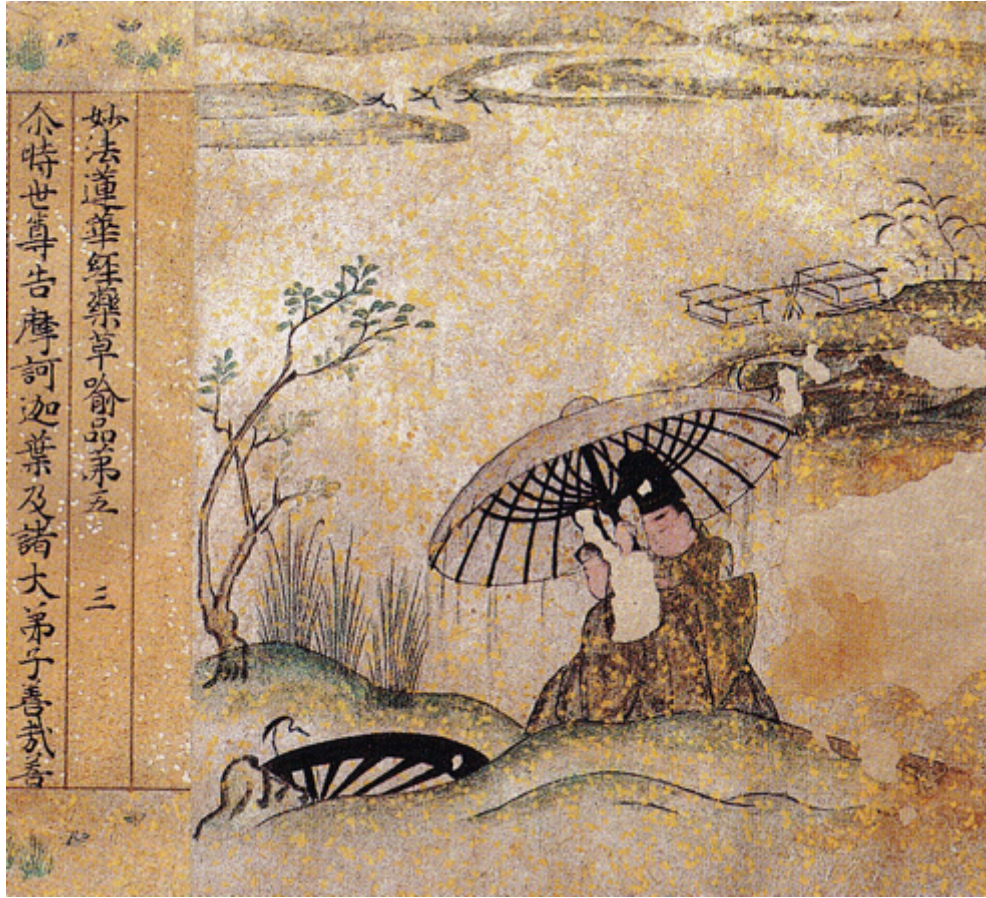 妙法蓮華経藥草喻品第五　三
尒時世尊告摩訶迦葉及諸大弟子善哉善